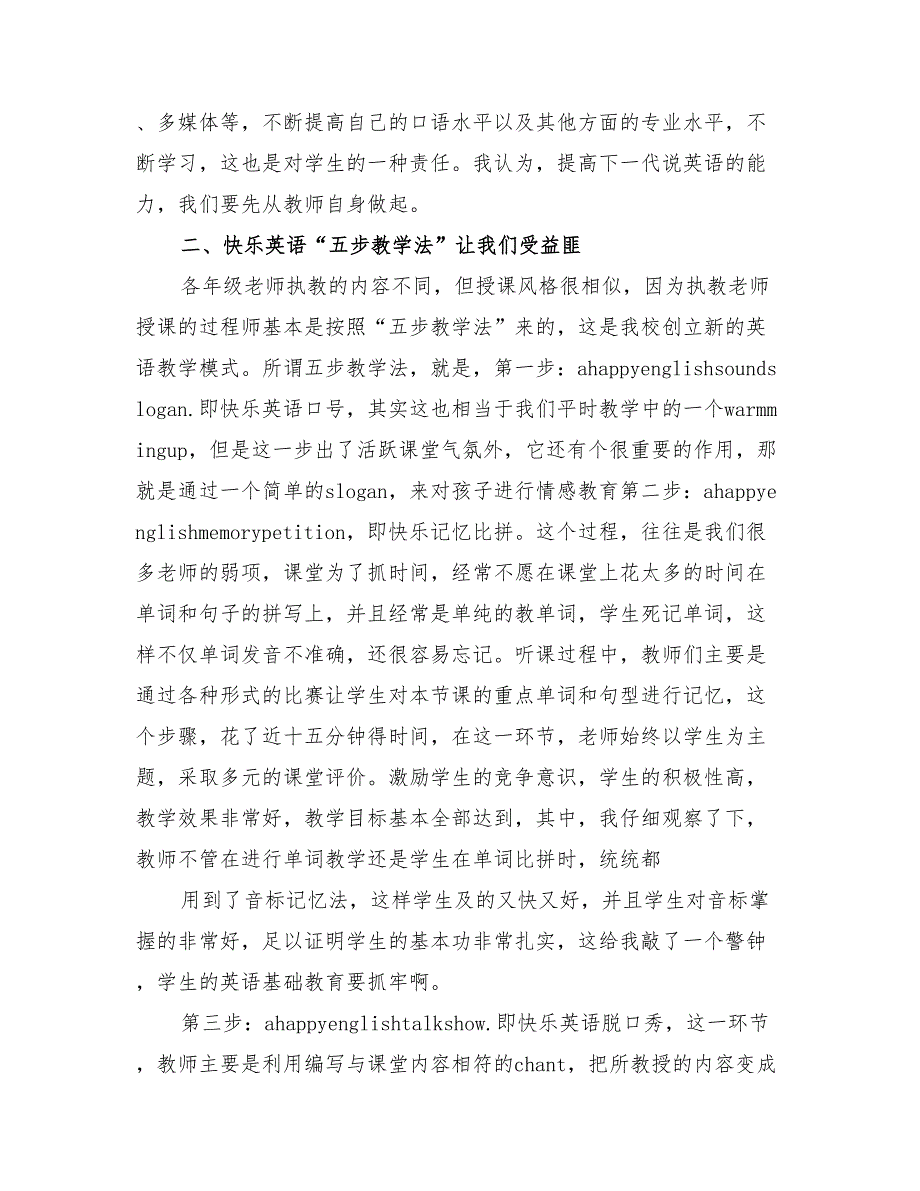 、多媒体等，不断提高自己的口语水平以及其他方面的专业水平，不
断学习，这也是对学生的一种责任。我认为，提高下一代说英语的能
力，我们要先从教师自身做起。
二、快乐英语“五步教学法”让我们受益匪
各年级老师执教的内容不同，但授课风格很相似，因为执教老师
授课的过程师基本是按照“五步教学法”来的，这是我校创立新的英
语教学模式。所谓五步教学法，就是，第一步：ahappyenglishsounds
logan.即快乐英语口号，其实这也相当于我们平时教学中的一个warmm
ingup，但是这一步出了活跃课堂气氛外，它还有个很重要的作用，那
就是通过一个简单的slogan，来对孩子进行情感教育第二步：ahappye
nglishmemorypetition，即快乐记忆比拼。这个过程，往往是我们很
多老师的弱项，课堂为了抓时间，经常不愿在课堂上花太多的时间在
单词和句子的拼写上，并且经常是单纯的教单词，学生死记单词，这
样不仅单词发音不准确，还很容易忘记。听课过程中，教师们主要是
通过各种形式的比赛让学生对本节课的重点单词和句型进行记忆，这
个步骤，花了近十五分钟得时间，在这一环节，老师始终以学生为主
题，采取多元的课堂评价。激励学生的竞争意识，学生的积极性高，
教学效果非常好，教学目标基本全部达到，其中，我仔细观察了下，
教师不管在进行单词教学还是学生在单词比拼时，统统都
用到了音标记忆法，这样学生及的又快又好，并且学生对音标掌
握的非常好，足以证明学生的基本功非常扎实，这给我敲了一个警钟
，学生的英语基础教育要抓牢啊。
第三步：ahappyenglishtalkshow.即快乐英语脱口秀，这一环节
，教师主要是利用编写与课堂内容相符的chant，把所教授的内容变成